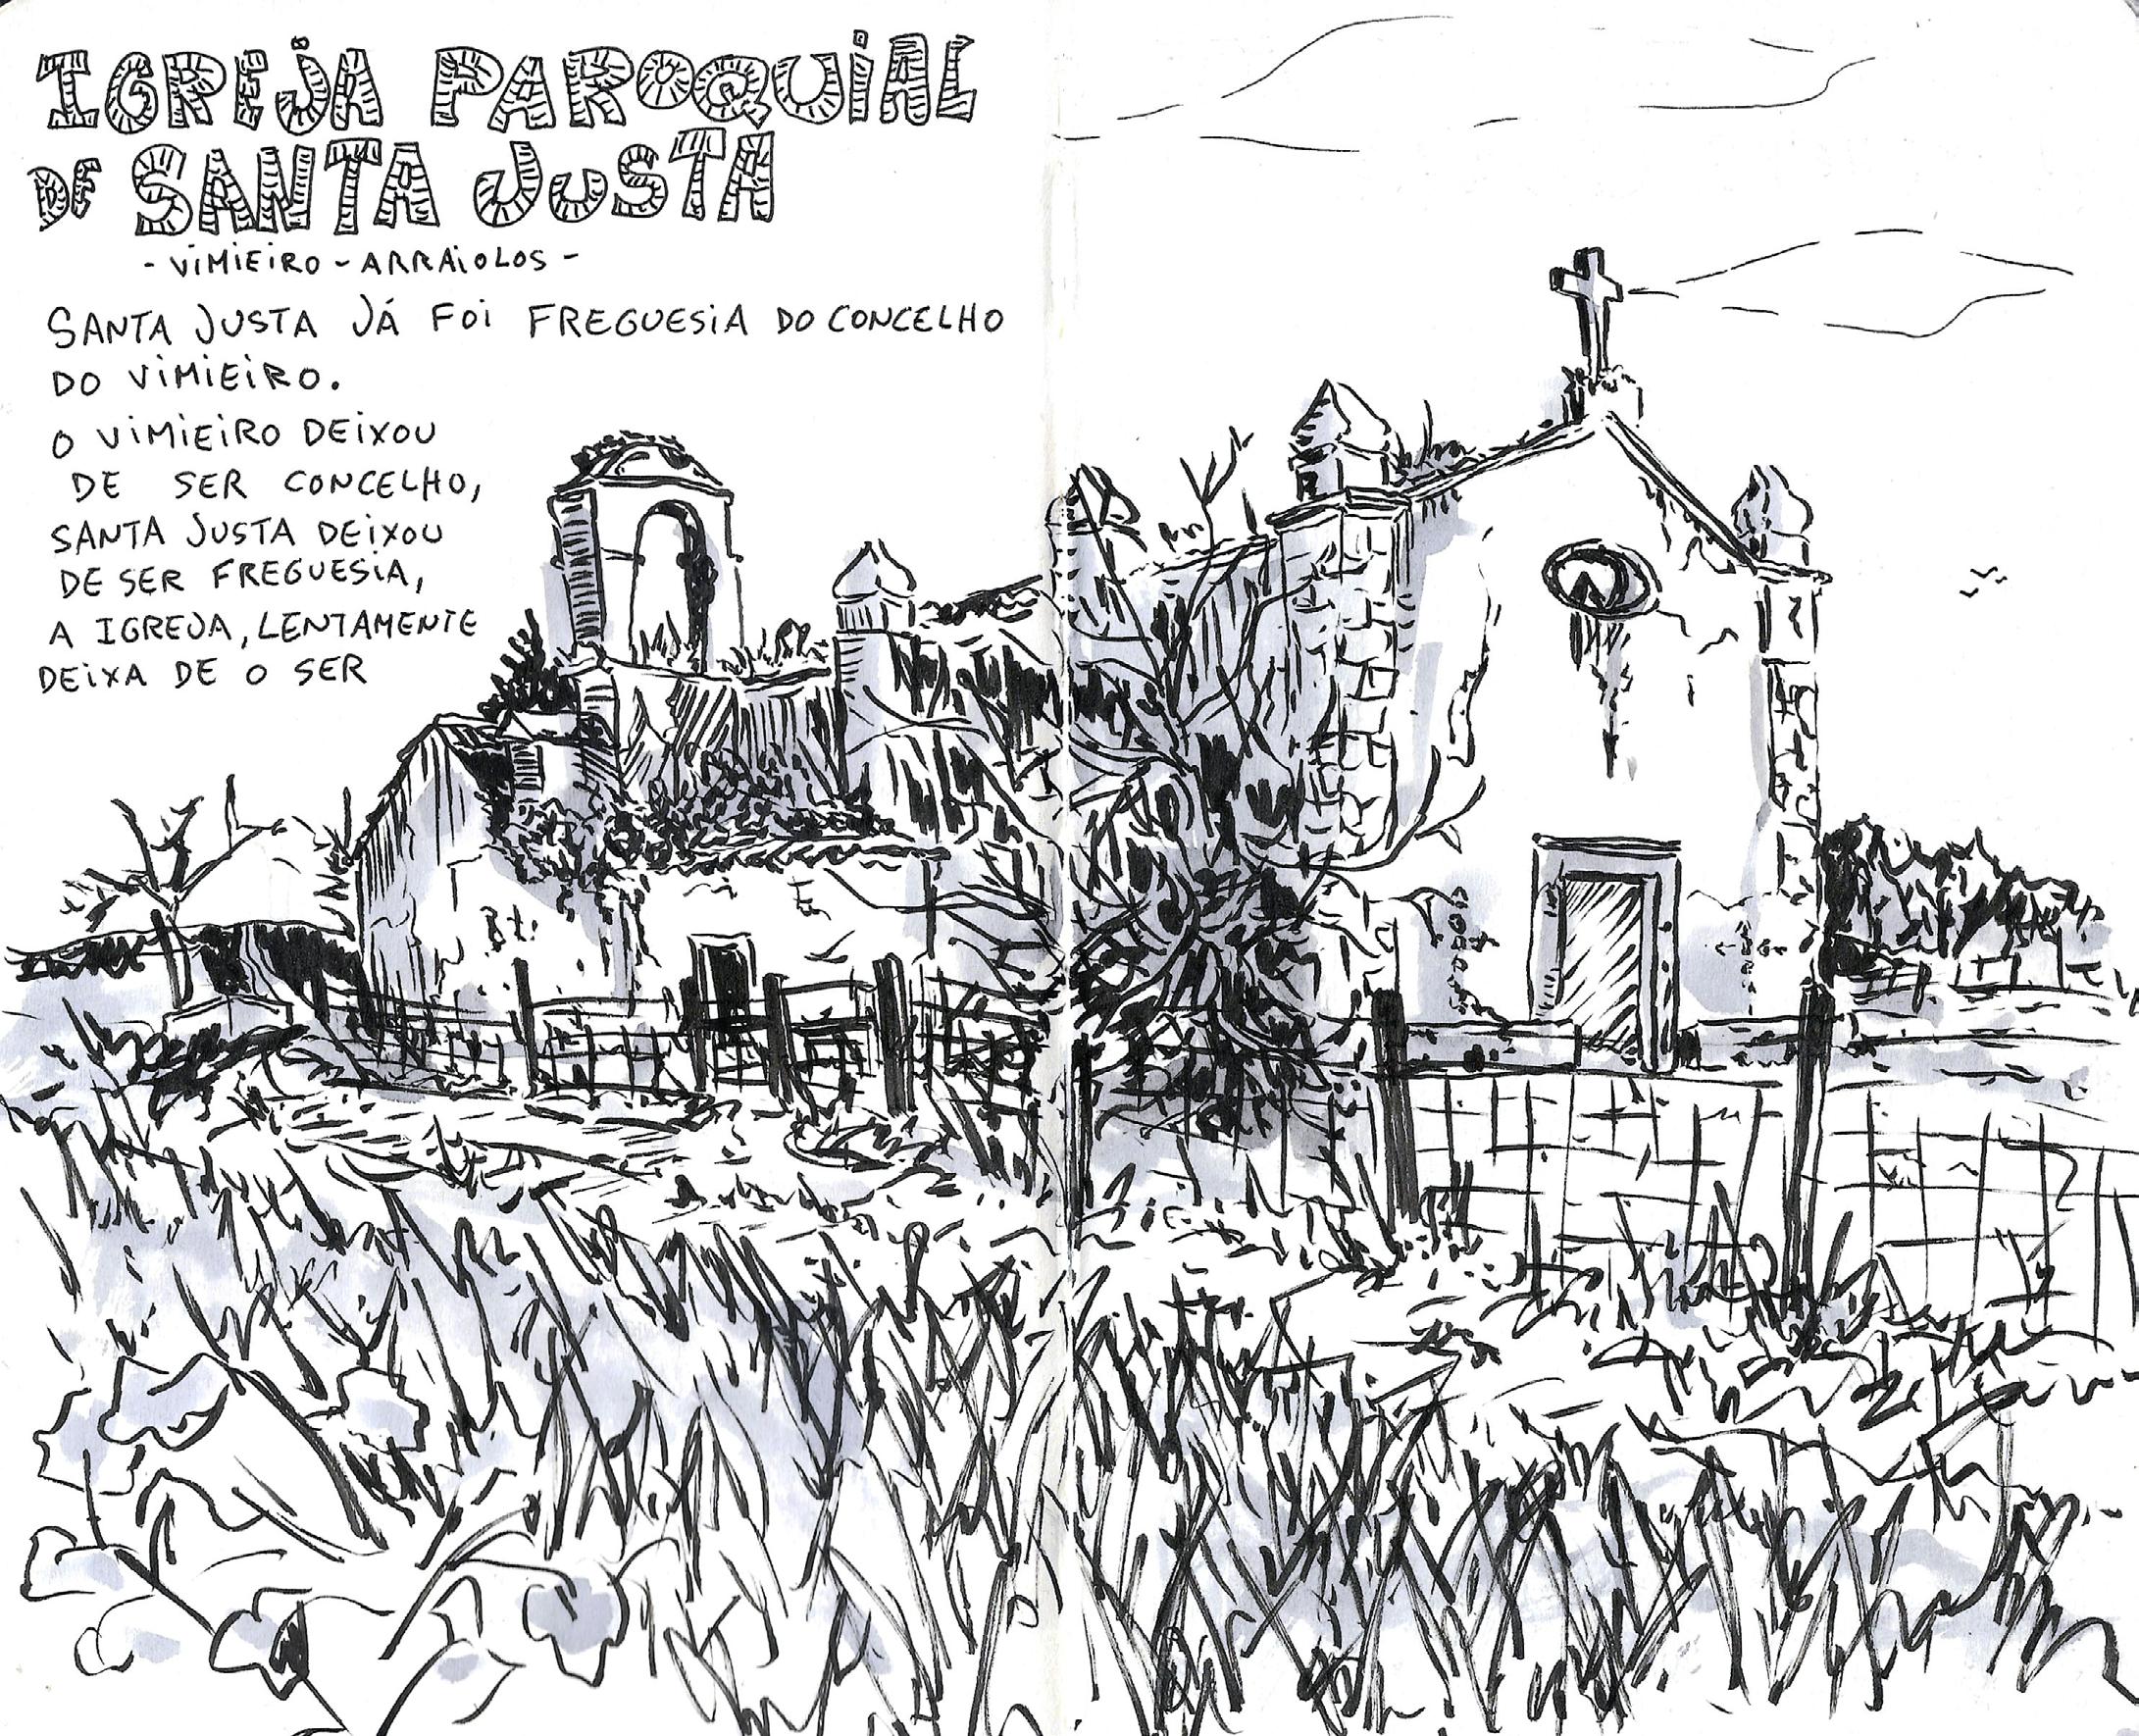 IGREJA PAROQUIAL
DE SANTA JUSTA
- VIMIEIRO - ARRAIOLOS -
SANTA JUSTA JÁ FOI FREGUESIA DO CONCELHO
DO VIMIEIRO.
O VIMIEIRO DEIXOU
DE SER CONCELHO,
SANTA JUSTA DEIXOU
DE SER FREGUESIA,
A IGREJA, LENTAMENTE
DEIXA DE O SER